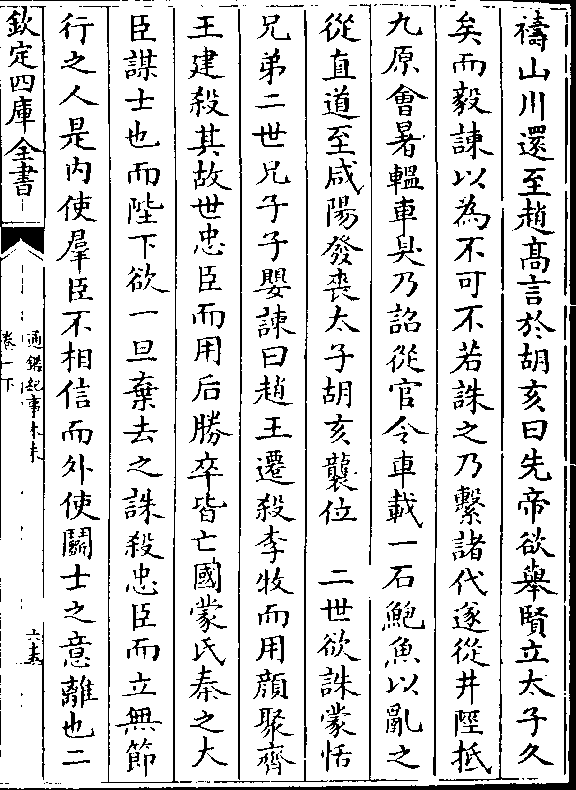 禱山川還至趙髙言於胡亥曰先帝欲舉賢立太子久
矣而毅諫以為不可不若誅之乃繫諸代遂從井陘抵
九原會暑轀車臭乃詔從官令車載一石鮑魚以亂之
從直道至咸陽發喪太子胡亥襲位　二世欲誅蒙恬
兄弟二世兄子子嬰諫曰趙王遷殺李牧而用顔聚齊
王建殺其故世忠臣而用后勝卒皆亡國蒙氏秦之大
臣謀士也而陛下欲一旦棄去之誅殺忠臣而立無節
行之人是内使羣臣不相信而外使鬭士之意離也二
欽定四庫全書
通鑑紀事本末
卷一下
六十五